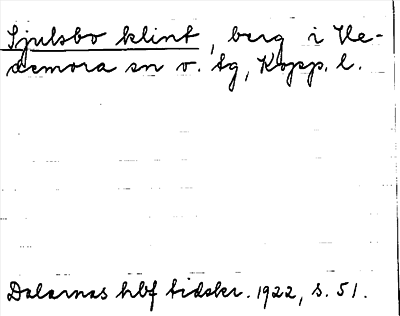 Sjulsbo klint, berg i He-
demora sn o. sg, Kopp. l.
Dalarnas hbf tidskr. 1922, s. 51.